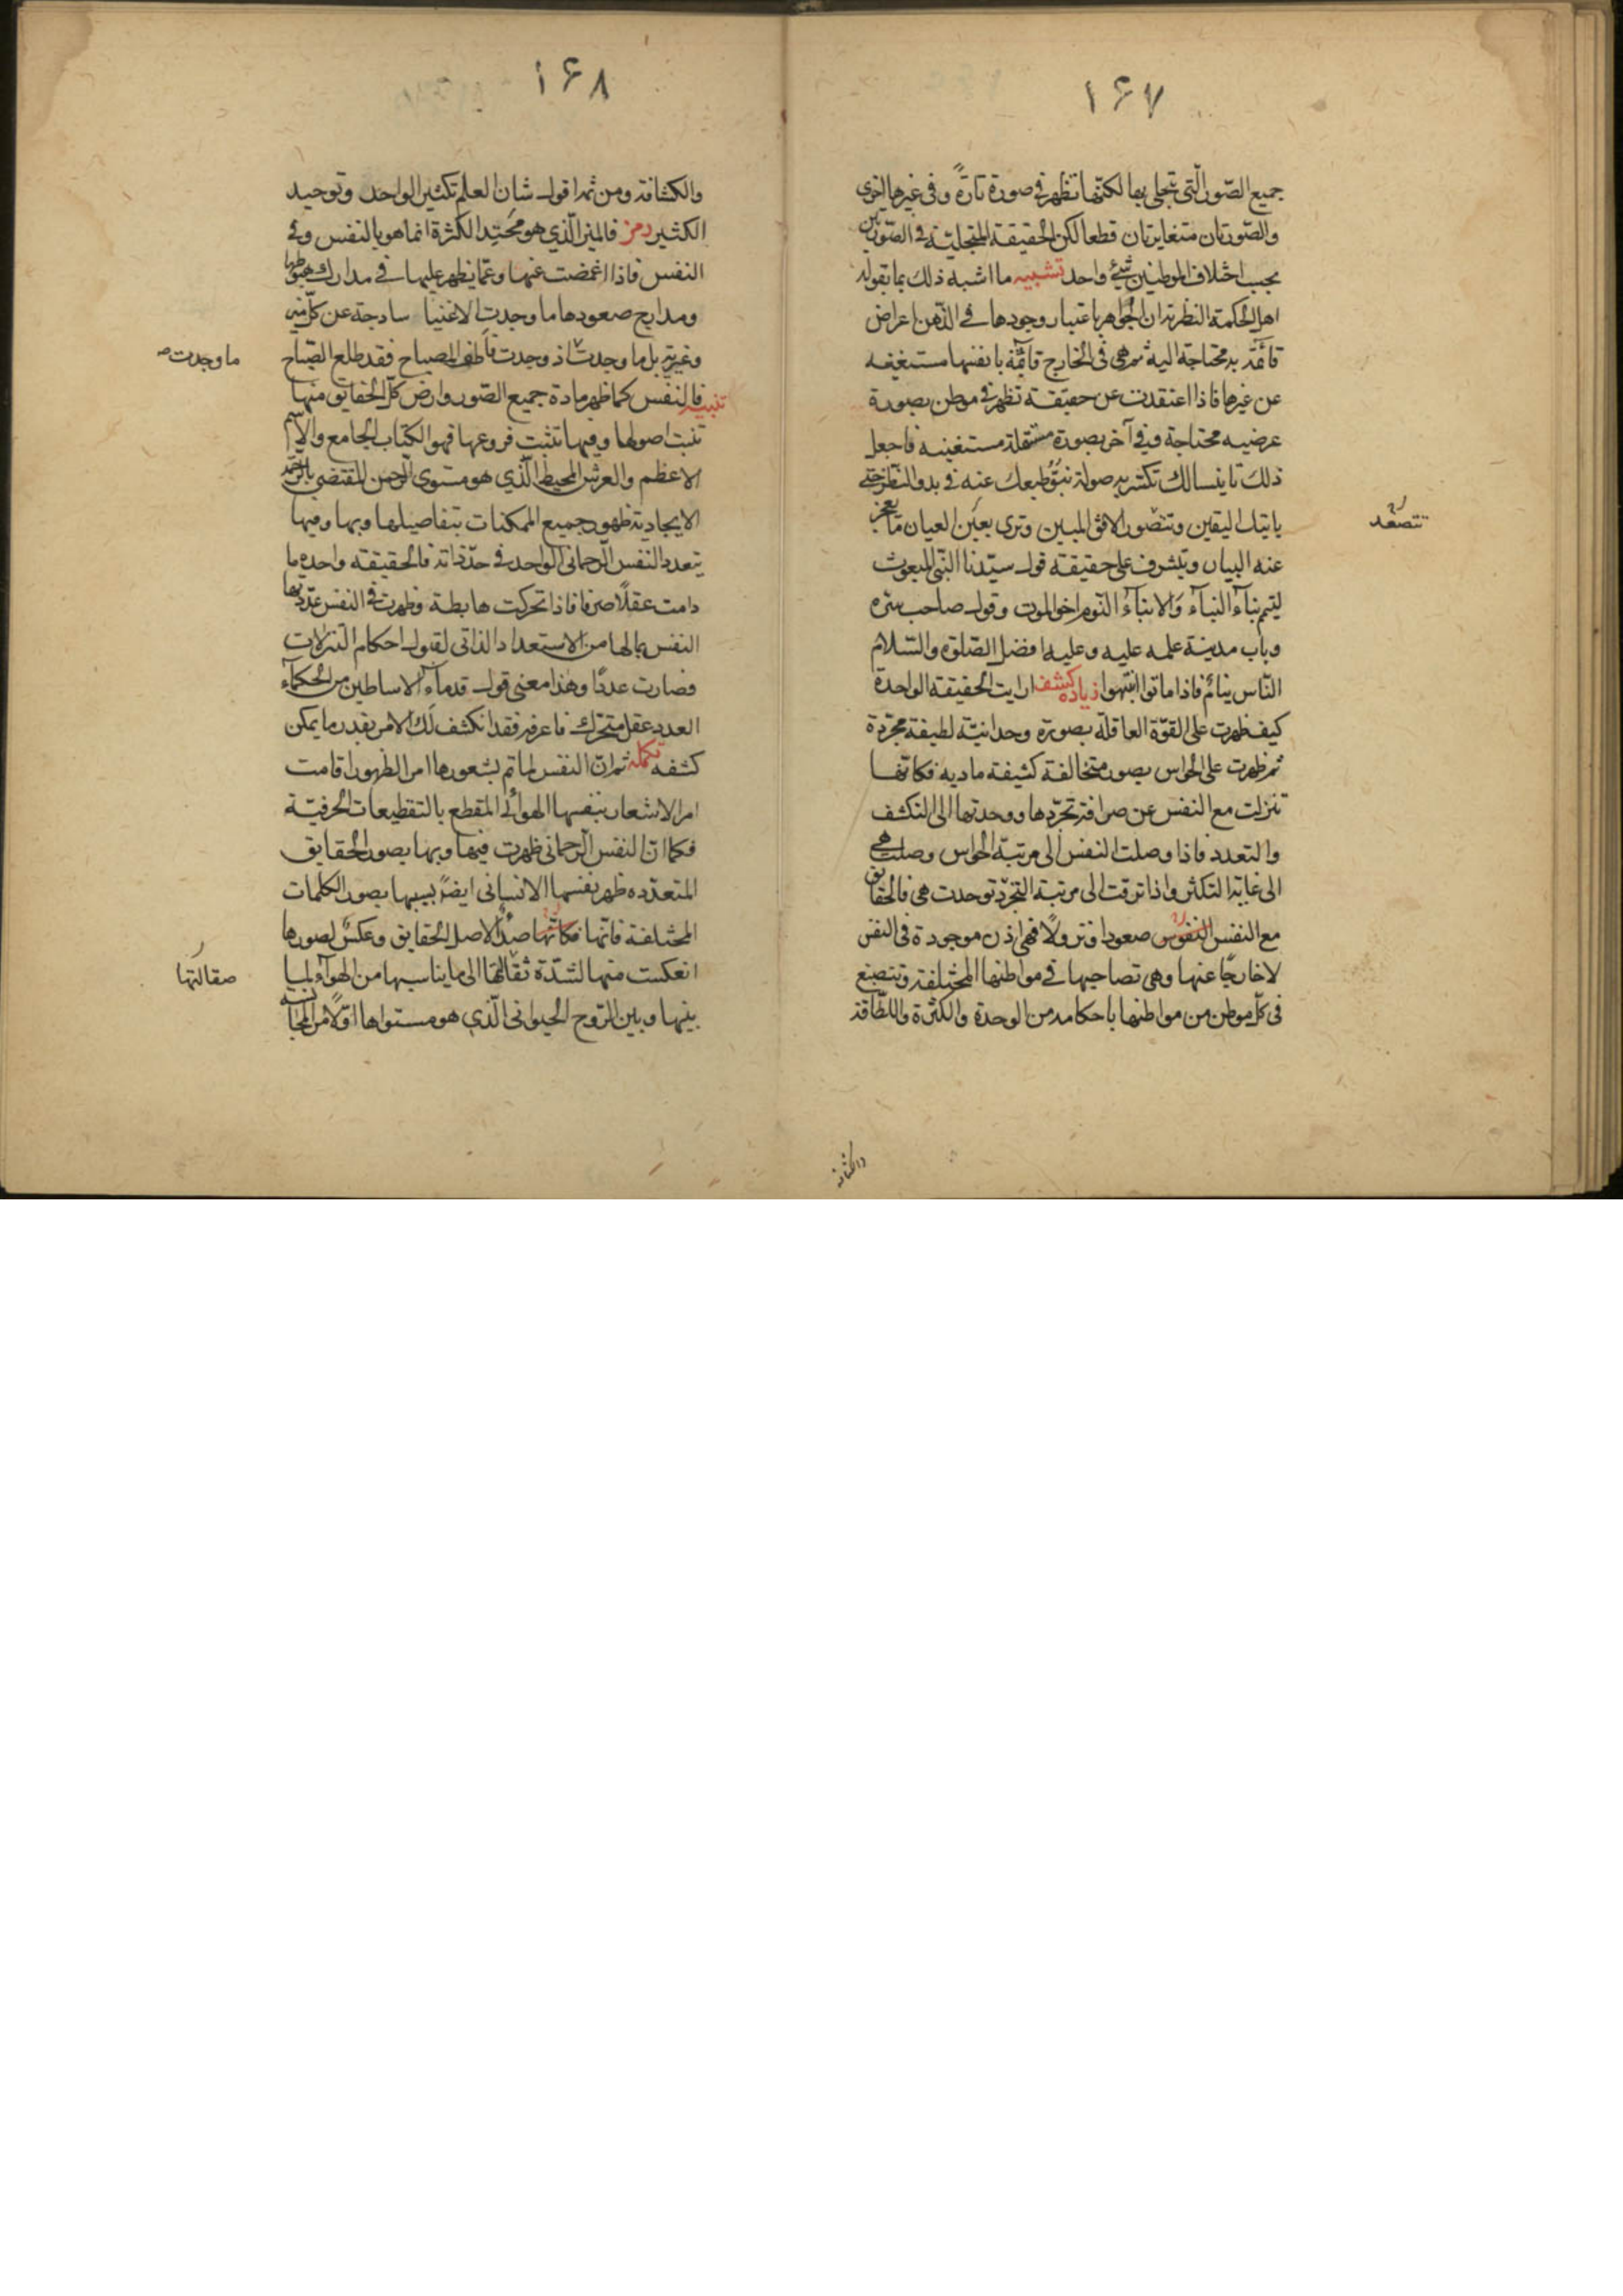 ١۶٧
جميع الصّور الّتى تتجلى بها لكنّها تظهر فى صورة تارةً وفى غيرها اخرى
والصّورتان متغايرتان قطعا لكن الحقيقة المتجليّة فى الصّورتين
بحسب اختلاف الموطنين شئ واحد تشبيه ما اشبه ذلك بما يقوله
اهل الحكمة النظرية ان الجواهر باعتبار وجودها فى الذّهن اعراض
قائمة به محتاجة اليه ثم هى فى الخارج قائمة بانفسها مستغنيه
عن غيرها فاذا اعتقدت عن حقيقة تظهر فى موطن بصورة
عرضيه محتاجة وفى آخر بصورة مستقلة مستغنيه فاجعل
ذلك تانيسا لك تكسر به صولة نبوّ طبعك عنه فى بدو النظر حتى
ياتيك اليقين وتتصور الافق المبين وترى بعين العيان ما يعجز
تتصعد
عنه البيان وتشرف على حقيقة قول سيّدنا النّبى المبعوث
ليتم بناء النباء والانباء النّوم اخو الموت وقول صاحب سرّه
وباب مدينة علمه عليه وعليها افضل الصّلوة والسّلام
النّاس نيام فاذا ماتوا انتبهوا زيادة كشف ارايت الحقيقة الواحدة
كيف ظهرت على القوّة العاقلة بصورة وحدانيّة لطيفة مجرّدة
ثم ظهرت على الحواس بصور متخالفة كثيفة ماديه فكانّها
تنزلت مع النفس عن صرافة تجرّدها ووحدتها الى التكشف
والتعدد فاذا وصلت النفس الى مرتبة الحواس وصلت هى
الى غاية التكثر واذا ترقت الى مرتبة التجرّد توحدت هى فالحقايق
مع النفس النفوس صعودا ونزولًا فهى اذن موجودة فى النفس
لا خارجًا عنها وهى تصاحبها فى مواطنها المختلفة وتنصبغ
فى كلّ موطن من مواطنها باحكامه من الوحدة والكثرة واللطافة
والكثافة
١۶٨
والكثافة ومن ثم اقول شان العلم تكثير الواحد وتوحيد
الكثير رمز فالميز الّذى هو محتد الكثرة انما هو بالنفس وفى
النفس فاذا اغمضت عنها وعمّا يظهر عليها فى مدارك هبوطها
ومدارج صعودها ما وجدت الاغنيا ساذجة عن كلّ ميز
وغيرية بل ما وجدت اذ وجدت فاطف المصباح فقد طلع الصّباح
ما وجدت
تنبيه فالنفس كما ظهر مادة جميع الصّور وارض كلّ الحقايق منها
تنبت اصولها وفيها تثبت فروعها فهو الكتاب الجامع والاسم
الاعظم والعرش المحيط الّذى هو مستوى الرّحمن المقتضى بالرّحمة
الايجادية ظهور جميع الممكنات بتفاصيلها وبها وفيها
يتعدد النفس الرّحمانى الواحد فى حدّ ذاته فالحقيقة واحده ما
دامت عقلًا صرفا فاذا تحركت هابطة وظهرت فى النفس عدّدتها
النفس بما لها من الاستعداد الذاتى لقبول احكام التنزلات
فصارت عددًا وهذا معنى قول قدماء الاساطين من الحكماء
العدد عقل متحرك فاعرفه فقد انكشف لك الامر بقدر ما يمكن
كشفه تكملة ثم ان النفس لما تم بشعورها امر الظهور اقامت
امر الاشعار بنفسها الهوائى المقطع بالتقطيعات الحرفيّة
فكما ان النفس الرّحمانى ظهرت فيها وبها بصور الحقايق
المتعدّده ظهر نفسها الانسانى ايضًا بسببها بصور الكلمات
المختلفة فانّها فكانّها صدًا لاصل الحقايق وعكسٌ لصورها
انعكست منها لشدّة ثقالتها الى ما يناسبها من الهواء لما
صقالتها
بينها وبين الرّوح الحيوانى الّذى هو مستواها اوّلًا من المجانسة